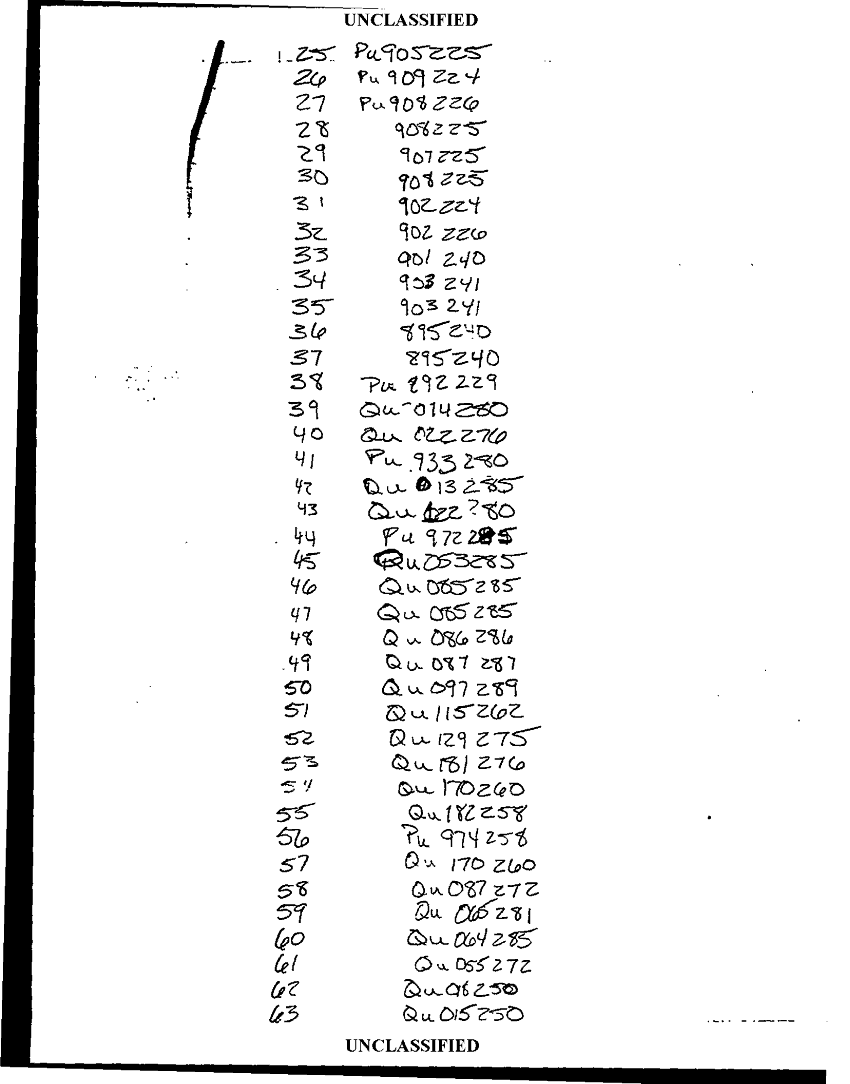 UNCLASSIFIED
25 Pu905225
26 Pu 909 224
27 Pu908226
28 908225
29 907225
30 908225
31 902224
32 902 226
33 901 240
34 903 241
35 903 241
36 895240
37 895240
38 Pu 892 229
39 Qu 014280
40 Qu 022276
41 Pu 933 280
42 Qu 013285
43 Qu
44 Pu 972285
45 Qu053285
46 Qu 085285
47 Qu 085285
48 Qu 086286
49 Qu 087 287
50 Qu 097289
51 Qu 115262
52 Qu 129275
53 Qu 181276
54 Qu 170260
55 Qu 182258
56 Pu 974258
57 Qu 170 260
58 Qu 087272
59 Qu 065281
60 Qu 064285
61 Qu 055272
62 Qu
63 Qu 015250
UNCLASSIFIED